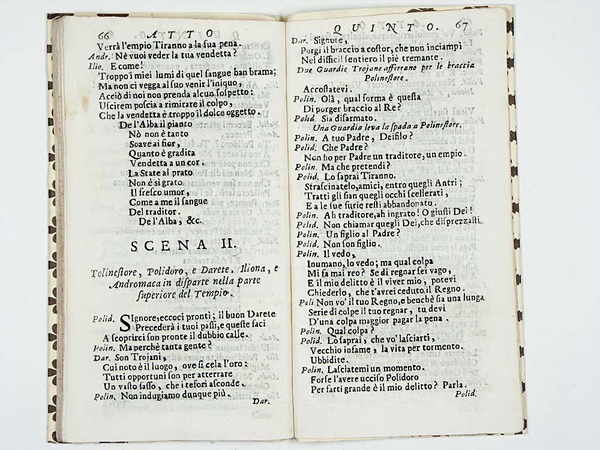 66 ATTO
Verrà l'empio Tiranno a la sua pena.
Andr. Nè vuoi veder la tua vendetta?
Ilio. E come!
Troppo i miei lumi di quel sangue han brama;
Ma non ci vegga al suo venir l'iniquo,
Acciò di noi non prenda alcun sospetto:
Usciremo poscia a rimirare il colpo,
Che la vendetta è troppo il dolce oggetto.
De l'Alba il pianto
Nò non è tanto
Soave ai fior,
Quanto è gradita
Vendetta a un cor.
La State al prato
Non è sì grato
Il fresco umor,
Come a me il sangue
Del traditor.
De l'Alba, &c.
SCENA II.
Polinestore, Polidoro, e Darete. Iliona, e
Andromaca in disparte nella parte
superiore del Tempio.
Polid. SIgnore, eccoci pronti; il buon Darete
Precederà i tuoi passi, e queste faci
A scoprirci son pronte il dubbio calle.
Polin. Ma perchè tanta gente?
Dar. Son Trojani,
Cui noto è il luogo, ove si cela l'oro:
Tutti opportuni son per atterrare
Un vasto sasso, che i tesori asconde.
Polin. Non indugiamo dunque più.
Dar.
QUINTO. 67
Dar. Signore,
Porgi il braccio a costor, che non inciampi
Nel difficil sentiero il piè tremante.
Due Guardie Trojane afferrano per le braccia
Polinestore.
Accostatevi.
Polin. Olà, qual forma è questa
Di porger braccio al Re?
Polid. Sia disarmato.
Una Guardia leva la spada a Polinestore.
Polin. A tuo Padre, Deifilo?
Polid. Che Padre?
Non ho per Padre un traditore, un empio.
Polin. Ma che pretendi?
Polid. Lo saprai Tiranno.
Strascinatelo, amici, entro quegli Antri;
Tratti gli sian quegli occhi scellerati,
E a le sue furie resti abbandonato.
Polin. Ah traditore, ah ingrato! O giusti Dei!
Polid. Non chiamar quegli Dei, che disprezzasti.
Polin. Un figlio al Padre?
Polid. Non son figlio.
Polin. Il vedo,
Inumano, lo vedo; ma qual colpa
Mi fa mai reo? Se di regnar sei vago,
E il mio delitto è il viver mio, potevi
Chiederlo, che t'avrei ceduto il Regno.
Poli Non vo' il tuo Regno, e benchè sia una lunga
Serie di colpe il tuo regnar, tu devi
D'una colpa maggior pagar la pena.
Polin. Qual colpa?
Polid. Lo saprai, che vo' lasciarti,
Vecchio infame, la vita per tormento.
Ubbidite.
Polin. Lasciatemi un momento.
Forse l'avere ucciso Polidoro
Per farti grande è il mio delitto? Parla.
Polid.